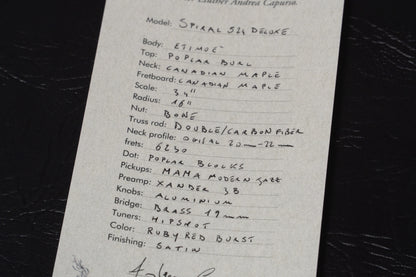 Luthier Andrea Capursi.
Model: SPIRAL 524 DELUXE
Body: ETIMOE
Top: POPLAR BURL
Neck: CANADIAN MAPLE
Fretboard: CANADIAN MAPLE
Scale: 34"
Radius: 16"
Nut: BONE
Truss rod: DOUBLE/CARBON FIBER
Neck profile: OGIGAL 20—22—
frets: 6230
Dot: POPLAR BLOCKS
Pickups: MAMA MODERN JAZZ
Preamp: XANDER 3B
Knobs: ALUMINIUM
Bridge: BRASS 19mm
Tuners: HIPSHOT
Color: RUBY RED BURST
Finishing: SATIN